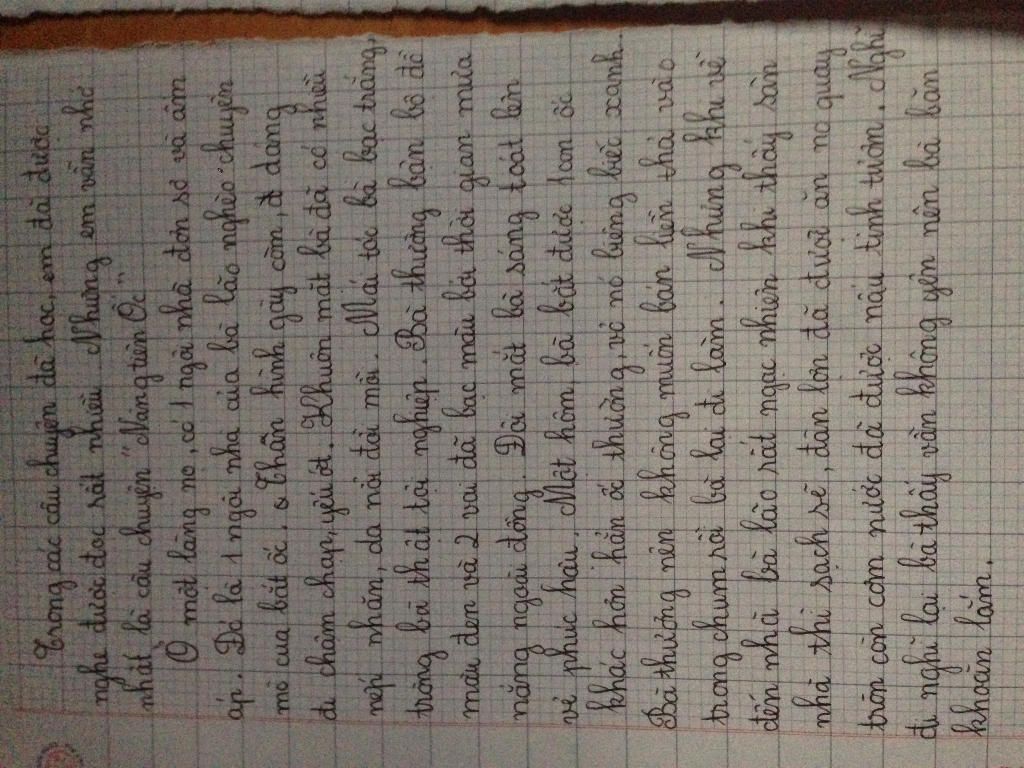 Trong các câu chuyện đã học, em đã được
nghe được đọc rất nhiều. Nhưng em vẫn nhớ
nhất là câu chuyện "Nàng tiên Ốc"
Ở một làng nọ, có 1 ngôi nhà đơn sơ và ấm
áp. Đó là 1 ngôi nhà của bà lão nghèo chuyên
mò cua bắt ốc. Thân hình gầy còm, dáng
đi chậm chạp, yếu ớt. Khuôn mặt bà đã có nhiều
nếp nhăn, da nổi đồi mồi. Mái tóc bà bạc trắng,
trông bà thật tội nghiệp. Bà thường bận bồ đồ
màu đen và 2 vai đã bạc màu bởi thời gian mưa
nắng ngoài đồng. Đôi mắt bà sáng toát lên
vẻ phúc hậu. Một hôm, bà bắt được 1 con ốc
khác hơn hẳn ốc thường, vỏ nó biêng biếc xanh.
Bà thương nên không muốn bán liền thả vào
trong chum rồi bà lại đi làm. Nhưng khi về
đến nhà bà lão rất ngạc nhiên khi thấy sân
nhà thì sạch sẽ, đàn lợn đã được ăn no quay
tròn còn cơm nước đã được nấu tinh tươm. Nghĩ
đi nghĩ lại bà thấy vẫn không yên nên bà băn
khoăn lắm.